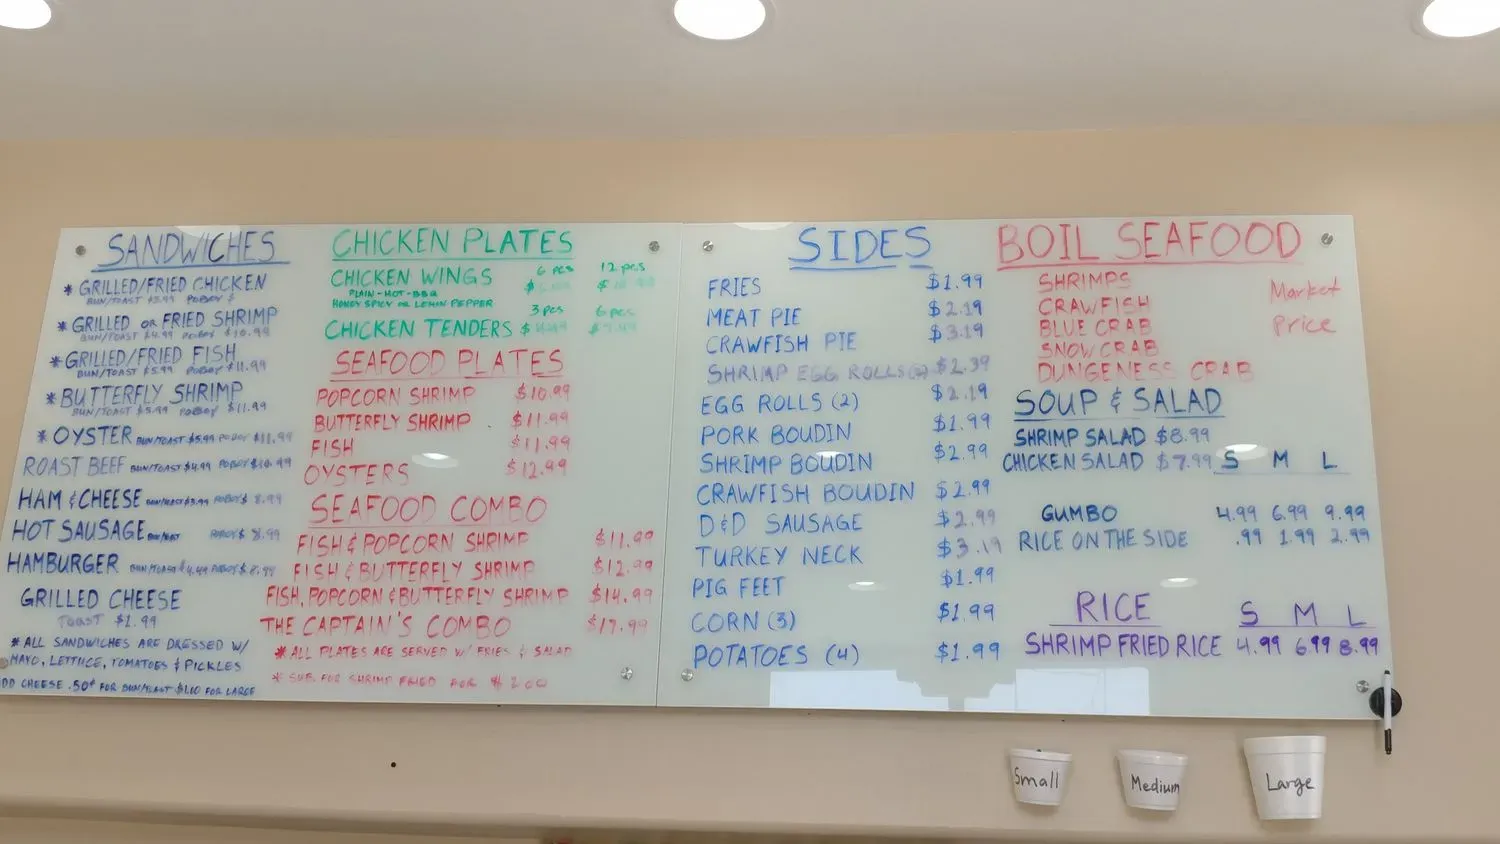 SANDWICHES
* GRILLED/FRIED CHICKEN
BUN/TOAST $5.99 POBOY $
* GRILLED OR FRIED SHRIMP
BUN/TOAST $4.99 POBOY $10.99
* GRILLED/FRIED FISH
BUN/TOAST $5.99 POBOY $11.99
* BUTTERFLY SHRIMP
BUN/TOAST $5.99 POBOY $11.99
* OYSTER BUN/TOAST $5.99 POBOY $11.99
ROAST BEEF BUN/TOAST $4.99 POBOY $10.99
HAM & CHEESE BUN/TOAST $3.99 POBOY $ 8.99
HOT SAUSAGE BUN/TOAST POBOY $ 8.99
HAMBURGER BUN/TOAST $4.49 POBOY $8.99
GRILLED CHEESE
TOAST $1.99
* ALL SANDWICHES ARE DRESSED W/
MAYO, LETTUCE, TOMATOES & PICKLES
DD CHEESE .50¢ FOR BUN/TOAST $1.00 FOR LARGE
CHICKEN PLATES
6 pcs 12 pcs
CHICKEN WINGS
PLAIN-HOT-BBQ
HONEY SPICY OR LEMIN PEPPER
3 pcs 6 pcs
CHICKEN TENDERS
SEAFOOD PLATES
POPCORN SHRIMP $10.99
BUTTERFLY SHRIMP $11.99
FISH $11.99
OYSTERS $12.99
SEAFOOD COMBO
FISH & POPCORN SHRIMP $11.99
FISH & BUTTERFLY SHRIMP $12.99
FISH, POPCORN & BUTTERFLY SHRIMP $14.99
THE CAPTAIN'S COMBO $17.99
* ALL PLATES ARE SERVED W/ FRIES & SALAD
* SUB. FOR SHRIMP FRIED FOR $ 2.00
SIDES
FRIES $1.99
MEAT PIE $2.19
CRAWFISH PIE $3.19
SHRIMP EGG ROLLS(2) $2.39
EGG ROLLS (2) $2.19
PORK BOUDIN $1.99
SHRIMP BOUDIN $2.99
CRAWFISH BOUDIN $2.99
D&D SAUSAGE $2.99
TURKEY NECK $3.19
PIG FEET $1.99
CORN (3) $1.99
POTATOES (4) $1.99
BOIL SEAFOOD
SHRIMPS
CRAWFISH
BLUE CRAB
SNOW CRAB
DUNGENESS CRAB
Market
Price
SOUP & SALAD
SHRIMP SALAD $8.99
CHICKEN SALAD $7.99
S M L
GUMBO 4.99 6.99 9.99
RICE ON THE SIDE .99 1.99 2.99
RICE S M L
SHRIMP FRIED RICE 4.99 6.99 8.99
Small
Medium
Large